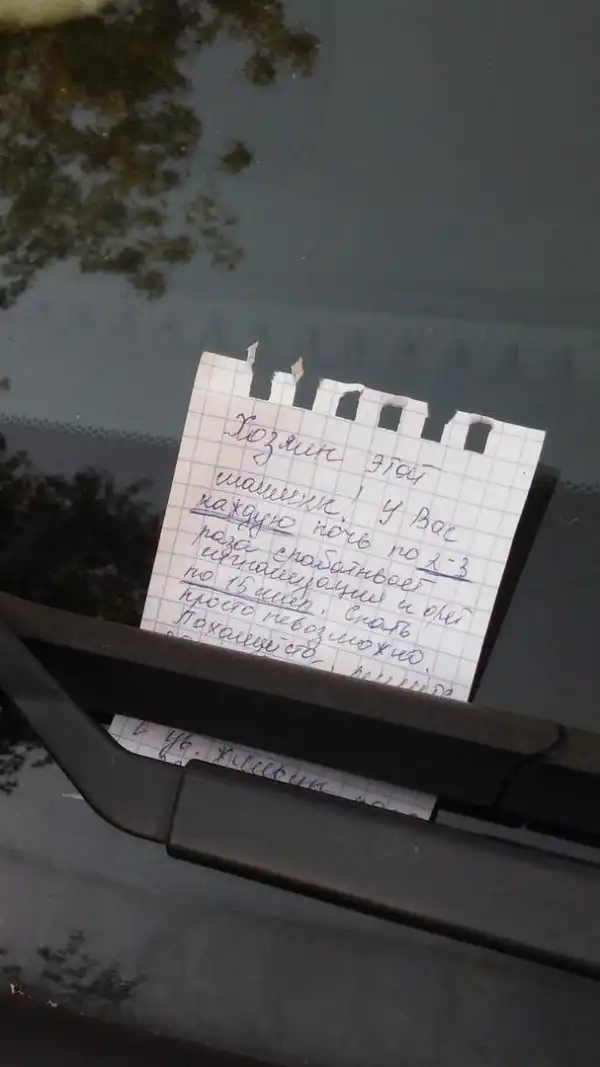 Хозяин этой
машины! У Вас
каждую ночь по 2-3
раза срабатывает
сигнализация и орёт
по 15 мин. Спать
просто невозможно.
Пожалуйста, решите
с ув. жильцы